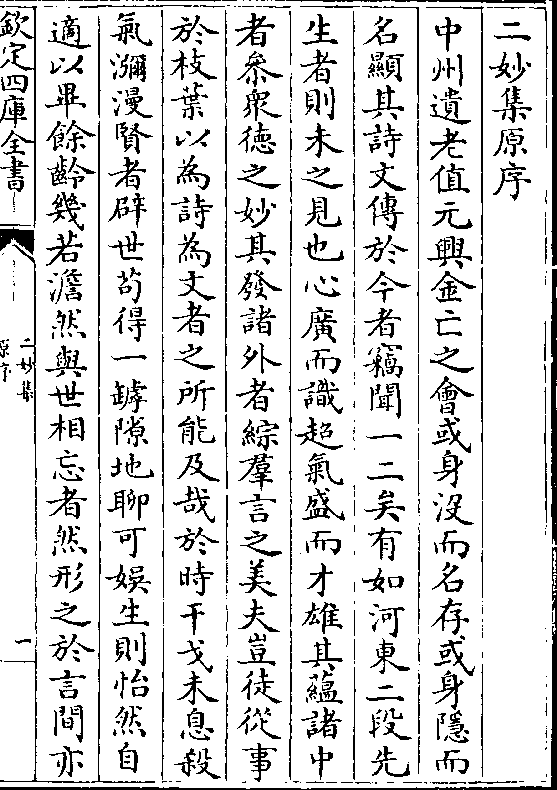 二妙集原序
中州遺老值元興金亡之會或身沒而名存或身隱而
名顯其詩文傳於今者竊聞一二矣有如河東二段先
生者則未之見也心廣而識超氣盛而才雄其蘊諸中
者叅衆徳之妙其發諸外者綜羣言之美夫豈徒從事
於枝葉以為詩為文者之所能及哉於時干戈未息殺
氣瀰漫賢者辟世苟得一罅隙地聊可娛生則怡然自
適以畢餘齡幾若澹然與世相忘者然形之於言間亦
欽定四庫全書
二妙集
原序
一